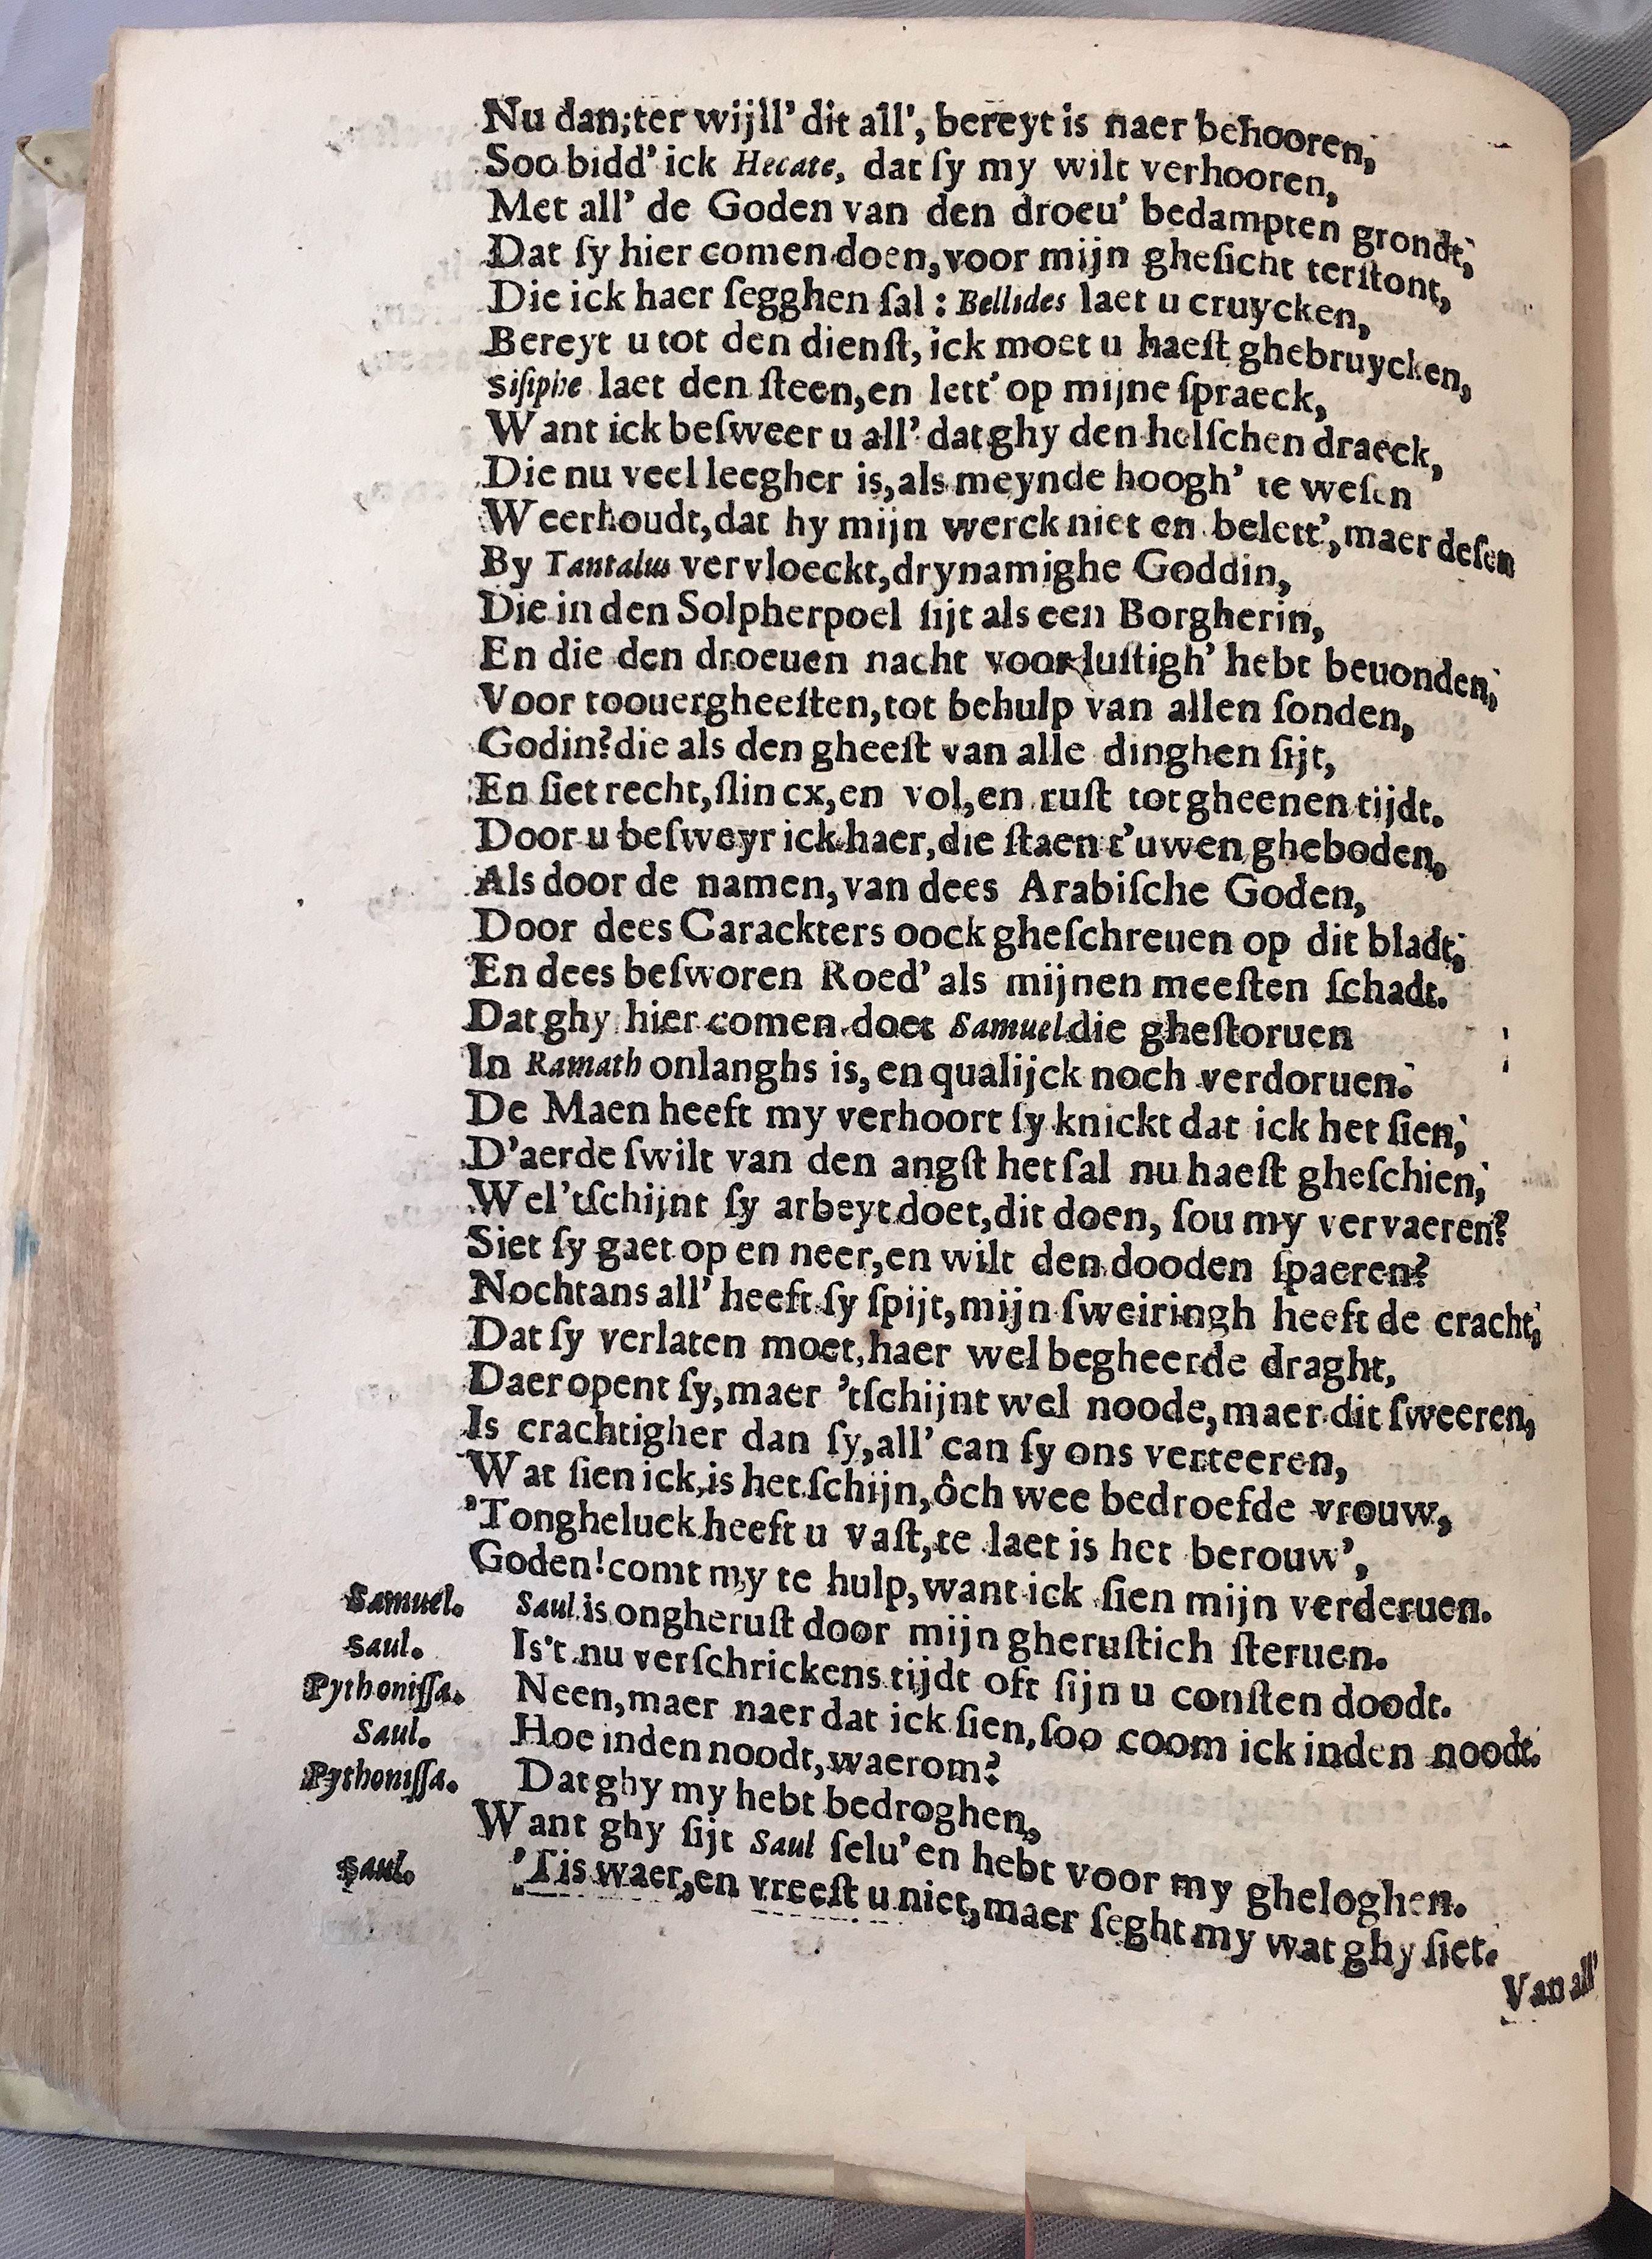 Nu dan;ter wijll' dit all', bereyt is naer behooren,
Soo bidd' ick Hecate, dat ſy my wilt verhooren,
Met all' de Goden van den droeu' bedampten grondt,
Dat ſy hier comen doen, voor mijn gheſicht terſtont,
Die ick haer ſegghen ſal : Bellides laet u cruycken,
Bereyt u tot den dienſt, ick moet u haeſt ghebruycken,
Siſiphe laet den ſteen, en lett' op mijne ſpraeck,
Want ick beſweer u all' dat ghy den helſchen draeck,
Die nu veel leegher is, als meynde hoogh' te weſen
Weerhoudt, dat hy mijn werck niet en belett', maer deſen
By Tantalus vervloeckt, drynamighe Goddin,
Die in den Solpherpoel ſijt als een Borgherin,
En die den droeuen nacht voor luſtigh' hebt beuonden,
Voor toouergheeſten, tot behulp van allen ſonden,
Godin? die als den gheeſt van alle dinghen ſijt,
En ſiet recht, ſlincx, en vol, en ruſt tot gheenen tijdt.
Door u beſweyr ick haer, die ſtaen t'uwen gheboden,
Als door de namen, van dees Arabiſche Goden,
Door dees Carackters oock gheſchreuen op dit bladt,
En dees beſworen Roed' als mijnen meeſten ſchadt.
Dat ghy hier comen doet Samuel die gheſtoruen
In Ramath onlanghs is, en qualijck noch verdoruen.
De Maen heeft my verhoort ſy knickt dat ick het ſien,
D'aerde ſwilt van den angſt het ſal nu haeſt gheſchien,
Wel 'tſchijnt ſy arbeyt doet, dit doen, ſou my vervaeren?
Siet ſy gaet op en neer, en wilt den dooden ſpaeren?
Nochtans all' heeft ſy ſpijt, mijn ſweiringh heeft de cracht,
Dat ſy verlaten moet, haer wel begheerde draght,
Daer opent ſy, maer 'tſchijnt wel noode, maer dit ſweeren,
Is crachtigher dan ſy, all' can ſy ons verteeren,
Wat ſien ick, is het ſchijn, ôch wee bedroefde vrouw,
'Tongheluck heeft u vaſt, te laet is het berouw',
Goden! comt my te hulp, want ick ſien mijn verderuen.
Samuel. Saul is ongheruſt door mijn gheruſtich ſteruen.
Saul. Is't nu verſchrickens tijdt oft ſijn u conſten doodt.
Pythoniſſa. Neen, maer naer dat ick ſien, ſoo coom ick inden noodt.
Saul. Hoe inden noodt, waerom?
Pythoniſſa. Dat ghy my hebt bedroghen,
Want ghy ſijt Saul ſelu' en hebt voor my gheloghen.
Saul. 'Tis waer, en vreeſt u niet, maer ſeght my wat ghy ſiet.
Van all'